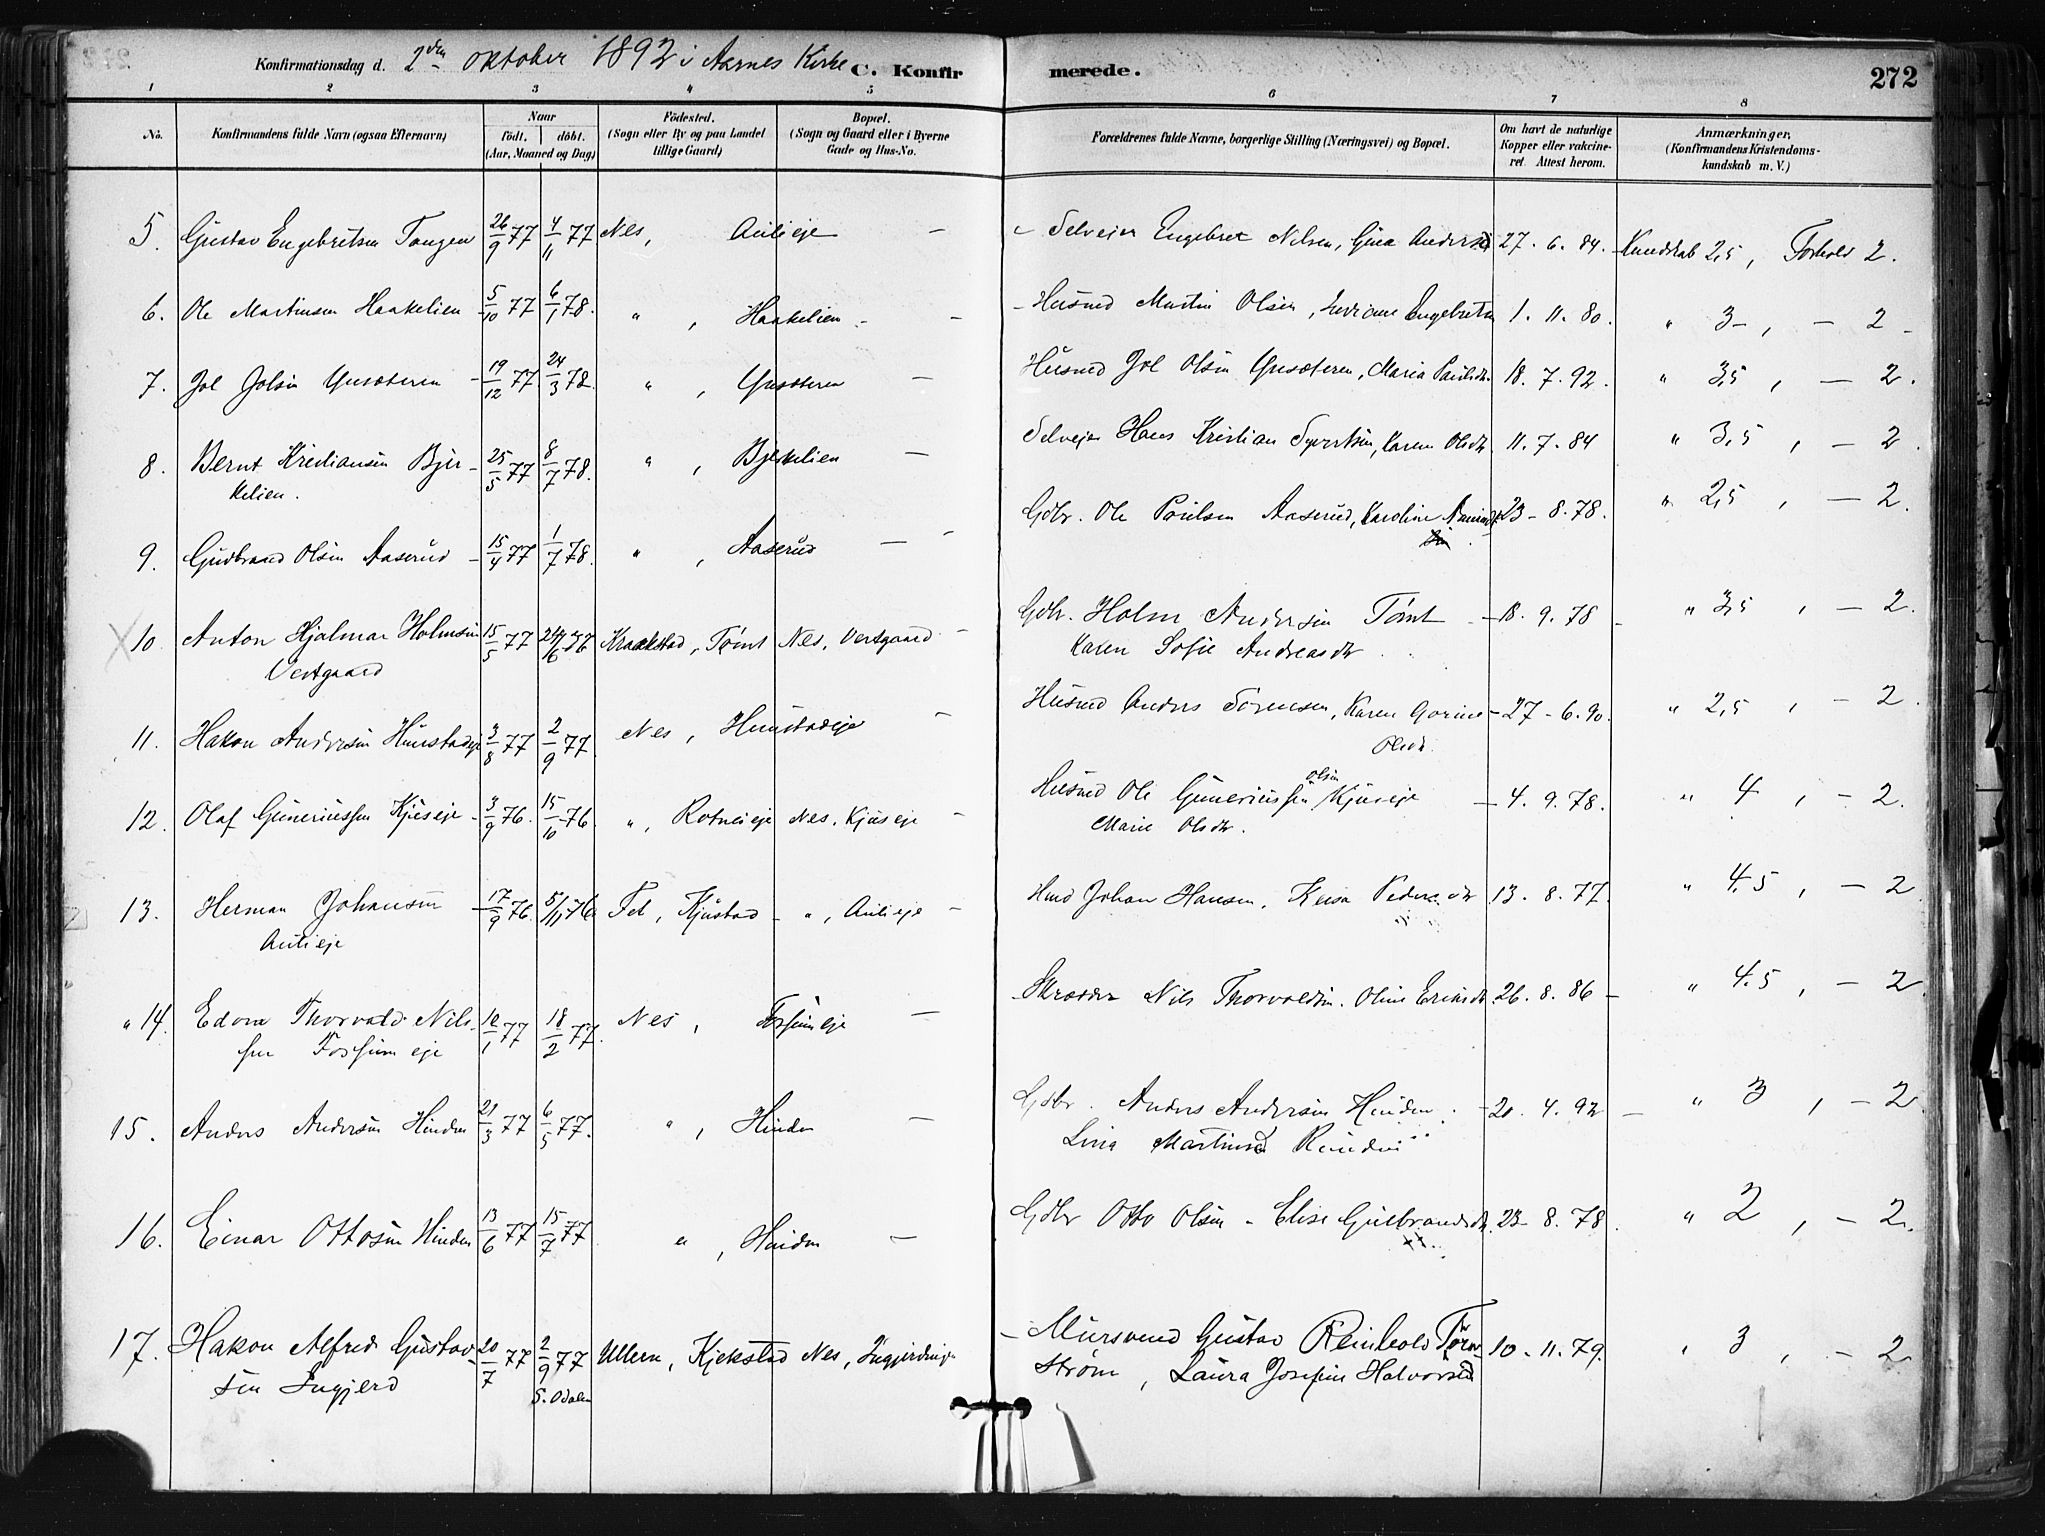 Konfirmationsdag d. 2den oktober 1892 i Aarnes Kirke C. Konfir merede. 272
1 2 3 4 5 6 7 8
No. Konfirmandens fulde Navn (ogsaa Efternavn) Naar født. døbt. (Aar, Maaned og Dag) Födested. (Sogn eller By og paa Landet tillige Gaard) Bopæl. (Sogn og Gaard eller i Byerne Gade og Hus-No. Forældrenes fulde Navne, borgerlige Stilling (Næringsvei) og Bopæl. Om havt de naturlige Kopper eller vakcineret. Attest herom. Anmærkninger, (Konfirmandens Kristendomskundskab m. V.)
5. Gustav Engebretsen Tangen 26/9 77 4/11 77 Nes, Aulieje — Selveier Engebret Nilsen, Gina Andersd 27. 6. 84. Kundskab 2,5, Forhold 2.
6. Ole Martinsen Haakelien 5/10 77 6/1 78. " , Haakelien — Husmd Martin Olsen, Engebretsd 1. 11. 80. " 3 , — 2
7. Jol Jolsen 19/12 77 24/3 78 " , — Husmd Jol Olsen, Maria Paulsdtr 18. 7. 92. " 3,5 , — 2.
8. Bernt Kristiansen Bjer- 25/5 77 8/7 78. " , Bjerkelien — Selveier Hans Kristian Syvertsen, Karen Olsdtr 11. 7. 84 " 3,5 , — 2
kelien.
9. Gudbrand Olsen Aaserud 15/4 77 1/7 78. " , Aaserud — Gdbr. Ole Paulsen Aaserud, Karoline 23 - 8. 78. " 2,5 , — 2
10. Anton Hjalmar Holmsen 15/5 77 Kraakstad, Tømt Nes, Vestgaard Gdbr. Holm Andersen Tømt 18. 9. 78 " 3,5 , — 2.
Vestgaard Karen Sofie Andreasdtr
11. Hakon Andersen Hunstadeje 3/8 77 2/9 77. Nes, Hunstadeje — Husmd Anders Sørensen, Karen Gorine 27 - 6. 90. " 2,5 , — 2
Olsdtr.
12. Olaf Guneriussen Kjuseje 3/9 76. 15/10 76. " , Rotneieje Nes, Kjuseje Husmd Ole Guneriussen Olsen Kjuseje 4. 9. 78. " 4 , — 2.
Marie Olsdtr.
13. Herman Johansen 17/9 76. 5/11 76 Fet, Kjustad " , Aulieje Hmd Johan Hansen, Kaisa Pedersdtr 13. 8. 77. " 4.5 , — 2
Aulieje
" 14. Edvin Thorvald Nils- 10/1 77 18/2 77. Nes, Fossumeje — Skrædder Nils Thorvaldsen, Oline Eriksdtr 26. 8. 86 " 4.5 , — 2
sen Fossum eje
15. Anders Andersen Hinden 21/3 77 6/5 77. " , Hinden — Gdbr. Anders Andersen Hinden 20. 4. 92 " 3 , — 2
Lina Martinsd
16. Einar Ottosen Hinden 13/6 77 15/7 77 " , Hinden — Gdbr Otto Olsen - Elise Gulbrandsdtr. 23 - 8. 78. " 2 , — 2.
17. Hakon Alfred Gustav- 20/7 77 2/9 77 Ullern, Kjekstad Nes, Mursvend Gustav Reinhold Tørn- 10. 11. 79. " 3 , — 2
sen Ingjerd S. Odalen strøm, Laura Josefine Halvorsd